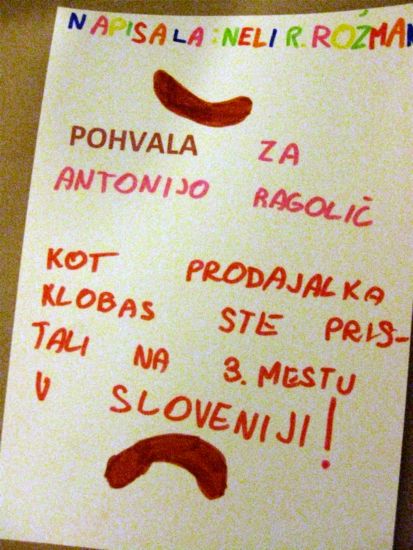 NAPISALA: NELI R. ROŽMAN
POHVALA ZA
ANTONIJO RAGOLIČ
KOT PRODAJALKA
KLOBAS STE PRIS-
TALI NA 3. MESTU
V SLOVENIJI!